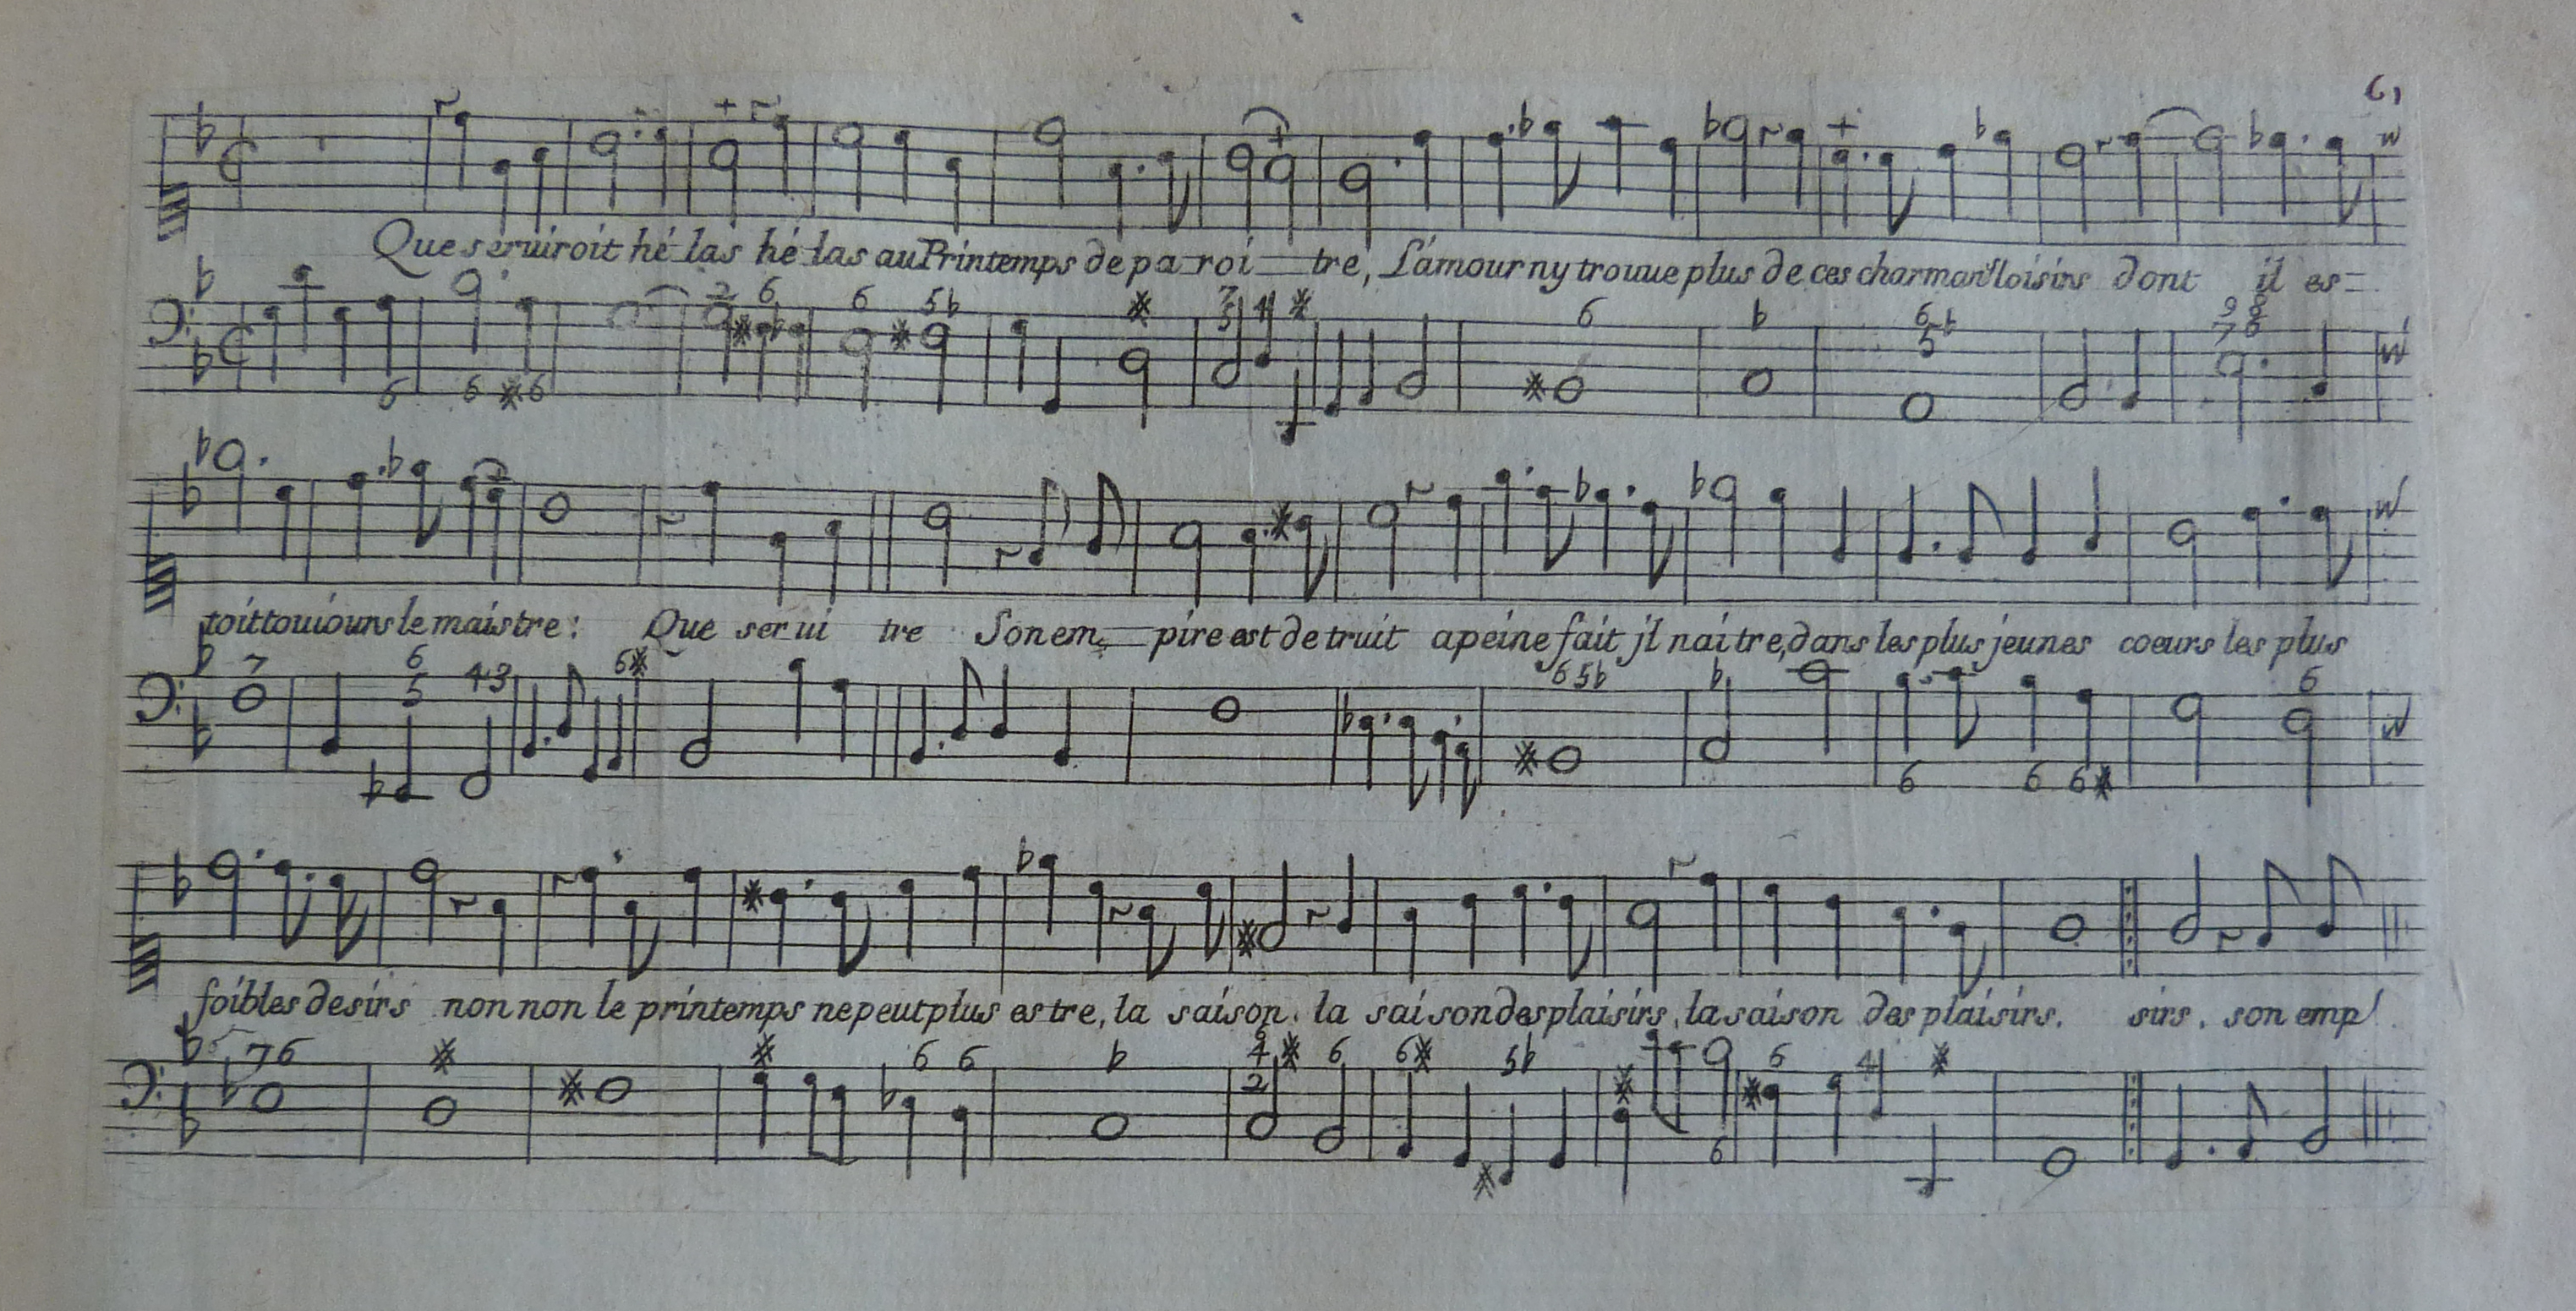 61
Que seruiroit hé las hé las au Printemps de pa roi tre, L'amour ny trouue plus de ces charmans loisirs dont il es=
2 6 6 5b 7 4 6 b 6 b 9 8
5 5 7 6
6 6 6
toit touiours le maistre: Que ser ui tre Son em pire est de truit a peine fait jl nai tre, dans les plus jeunes coeurs les plus
7 6 4 3 6 6 5b b 6
5
6 6 6
foibles desirs non non le printemps ne peut plus es tre, la saison. la saison des plaisirs, la saison des plaisirs. sirs. son emp
7 6 6 6 b 4 6 6 5b 6 4
2
6